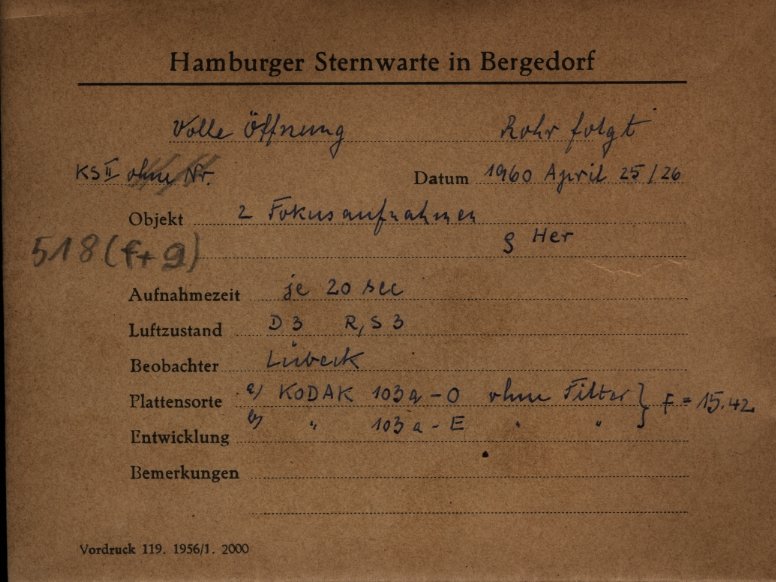 Hamburger Sternwarte in Bergedorf
Volle Öffnung Rohr folgt
KS II ohne Nr. Datum 1960 April 25/26
Objekt 2 Fokusaufnahmen
518 (f+g) ρ Her
Aufnahmezeit je 20 sec
Luftzustand D 3 R, S 3
Beobachter Lübeck
Plattensorte a) KODAK 103a-O ohne Filter } f = 15.42
b) " 103a-E " "
Entwicklung
Bemerkungen
Vordruck 119. 1956/1. 2000